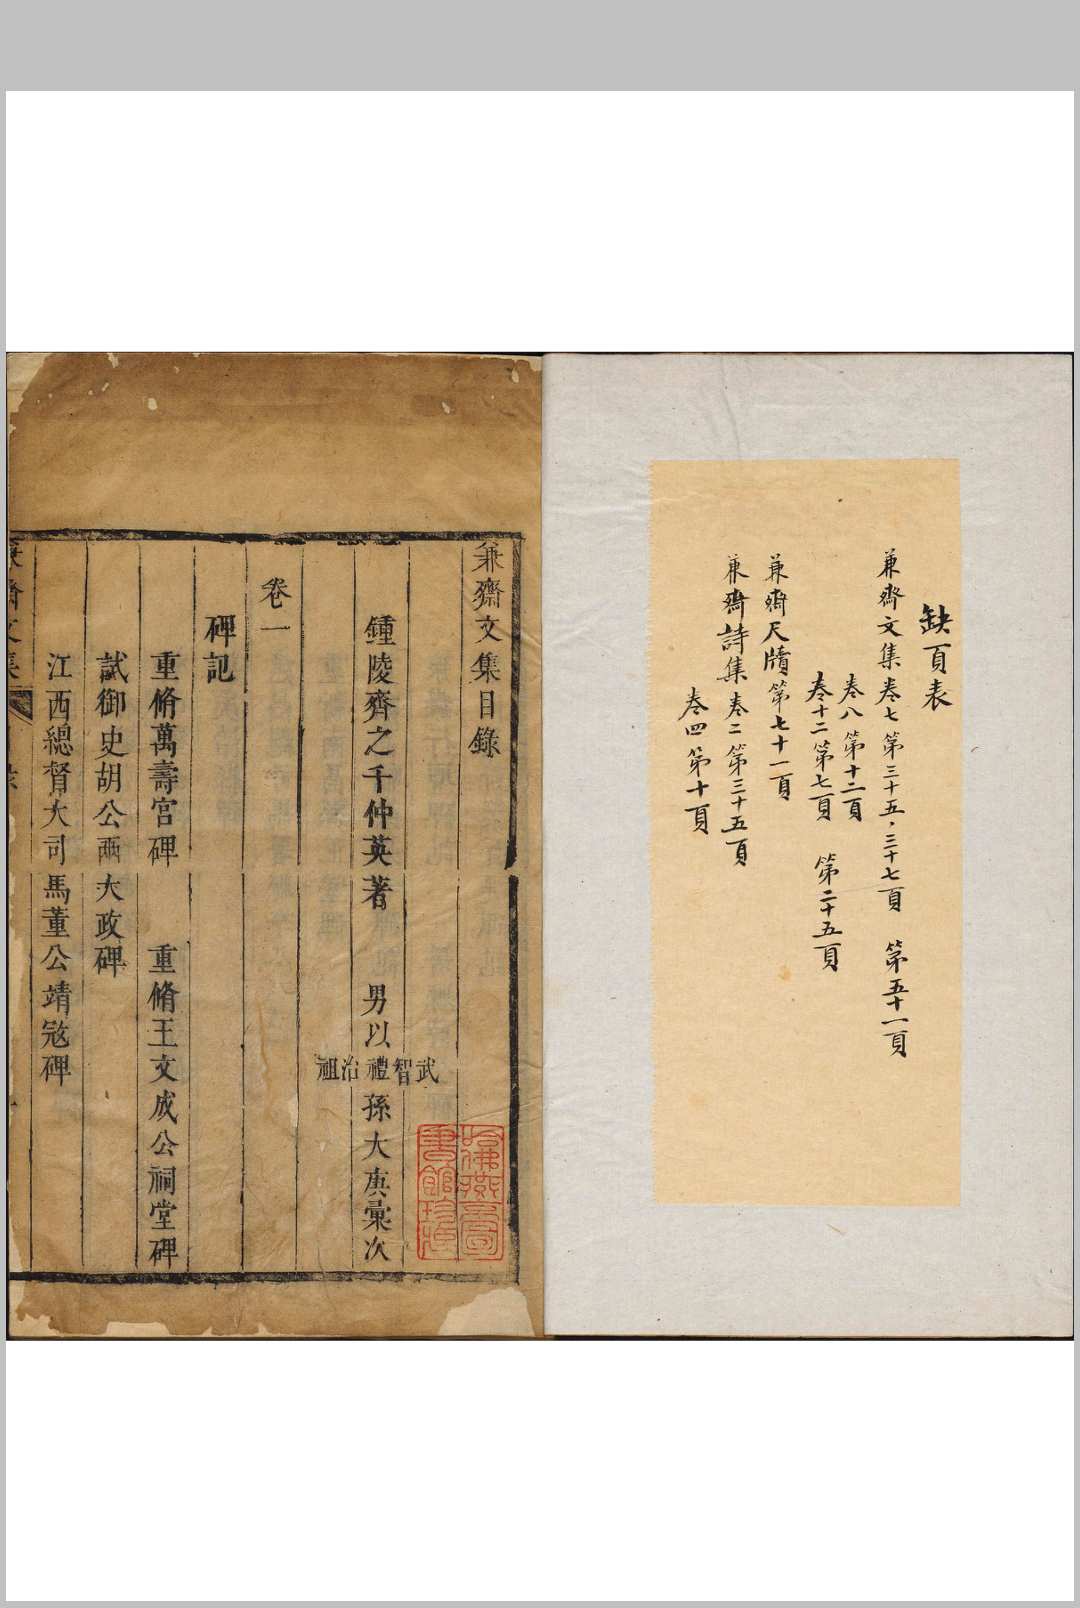 缺頁表
兼齋文集卷七第三十五、三十七頁　第五十一頁
卷八第十二頁
卷十二第七頁　第二十五頁
兼齋尺牘第七十一頁
兼齋詩集卷二第三十五頁
卷四第十頁
兼齋文集目錄
鍾陵齊之千仲英著　男以
武
智
禮
治
祖
孫大庚彙次
卷一
碑記
重脩萬壽宮碑　重脩王文成公祠堂碑
試御史胡公兩大政碑
江西總督大司馬董公靖寇碑
兼齋文集
哈佛燕京圖
書館珍藏